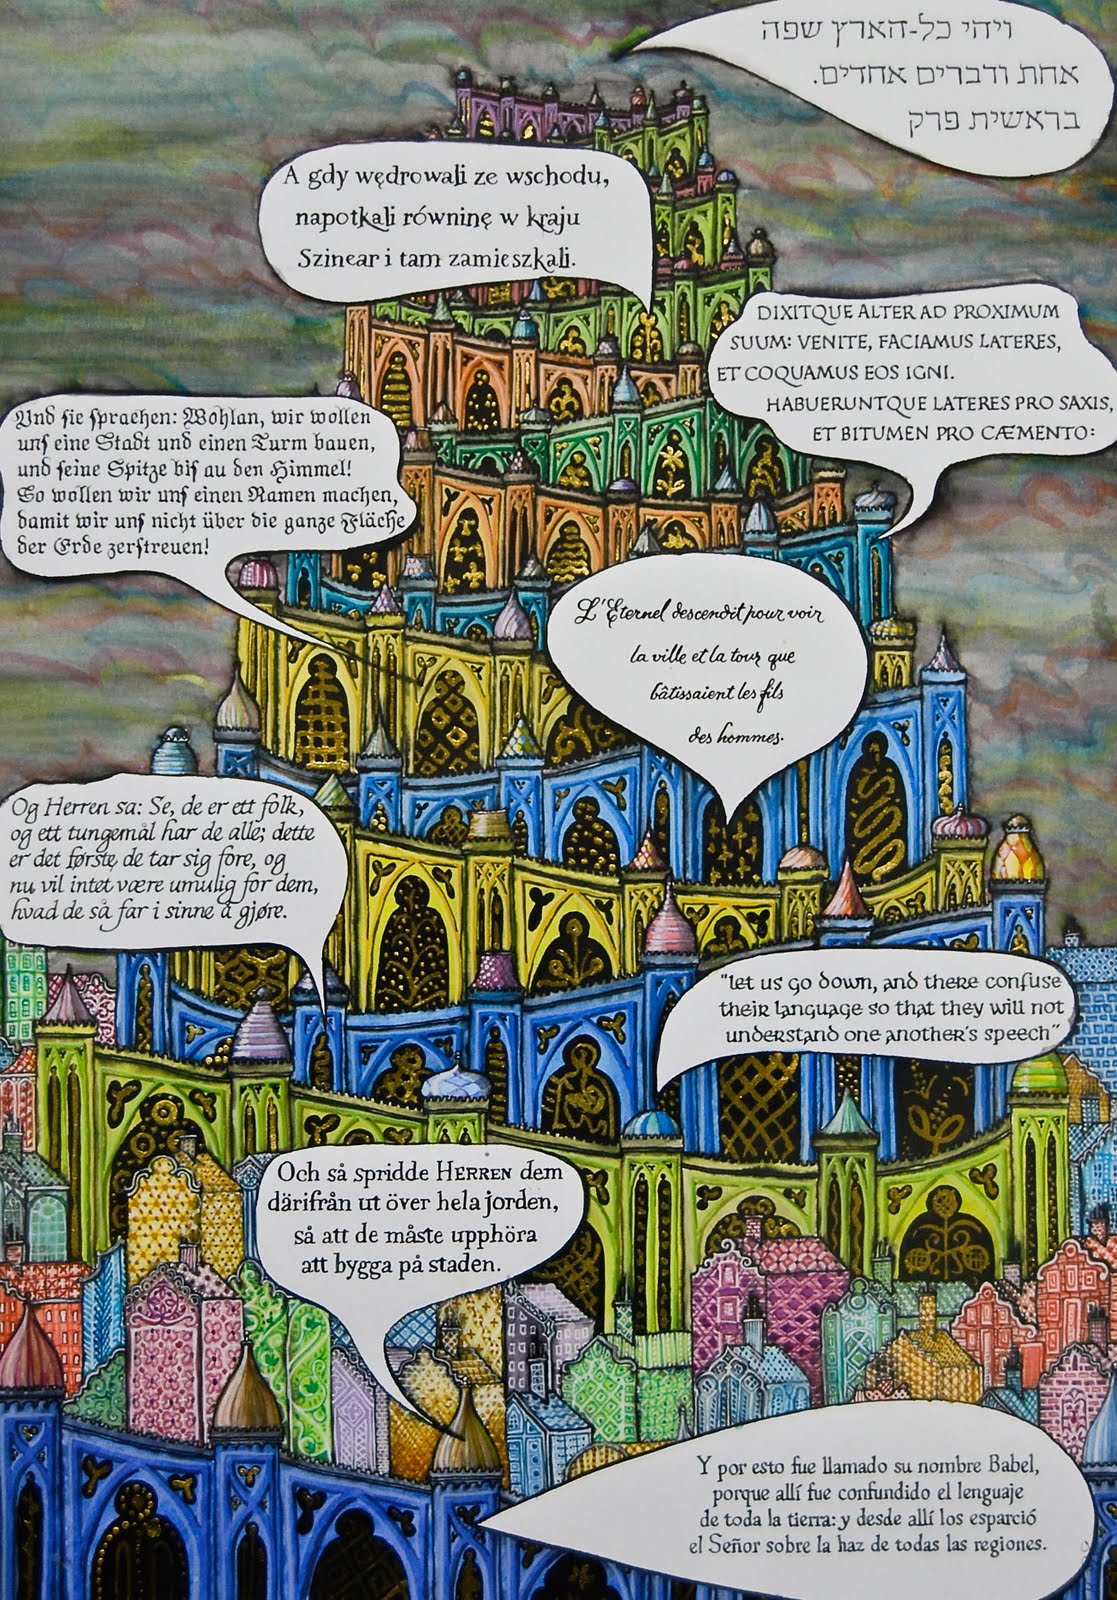 ויהי כל-הארץ שפה
אחת ודברים אחדים.
בראשית פרק
A gdy wędrowali ze wschodu,
napotkali równinę w kraju
Szinear i tam zamieszkali.
DIXITQUE ALTER AD PROXIMUM
SUUM: VENITE, FACIAMUS LATERES,
ET COQUAMUS EOS IGNI.
HABUERUNTQUE LATERES PRO SAXIS,
ET BITUMEN PRO CÆMENTO:
Und sie sprachen: Wohlan, wir wollen
uns eine Stadt und einen Turm bauen,
und seine Spitze bis au den Himmel!
So wollen wir uns einen Namen machen,
damit wir uns nicht über die ganze Fläche
der Erde zerstreuen!
L'Éternel descendit pour voir
la ville et la tour que
bâtissaient les fils
des hommes.
Og Herren sa: Se, de er ett folk,
og ett tungemål har de alle; dette
er det første de tar sig fore, og
nu vil intet være umulig for dem,
hvad de så far i sinne å gjøre.
"let us go down, and there confuse
their language so that they will not
understand one another's speech"
Och så spridde HERREN dem
därifrån ut över hela jorden,
så att de måste upphöra
att bygga på staden.
Y por esto fue llamado su nombre Babel,
porque allí fue confundido el lenguaje
de toda la tierra: y desde allí los esparció
el Señor sobre la haz de todas las regiones.